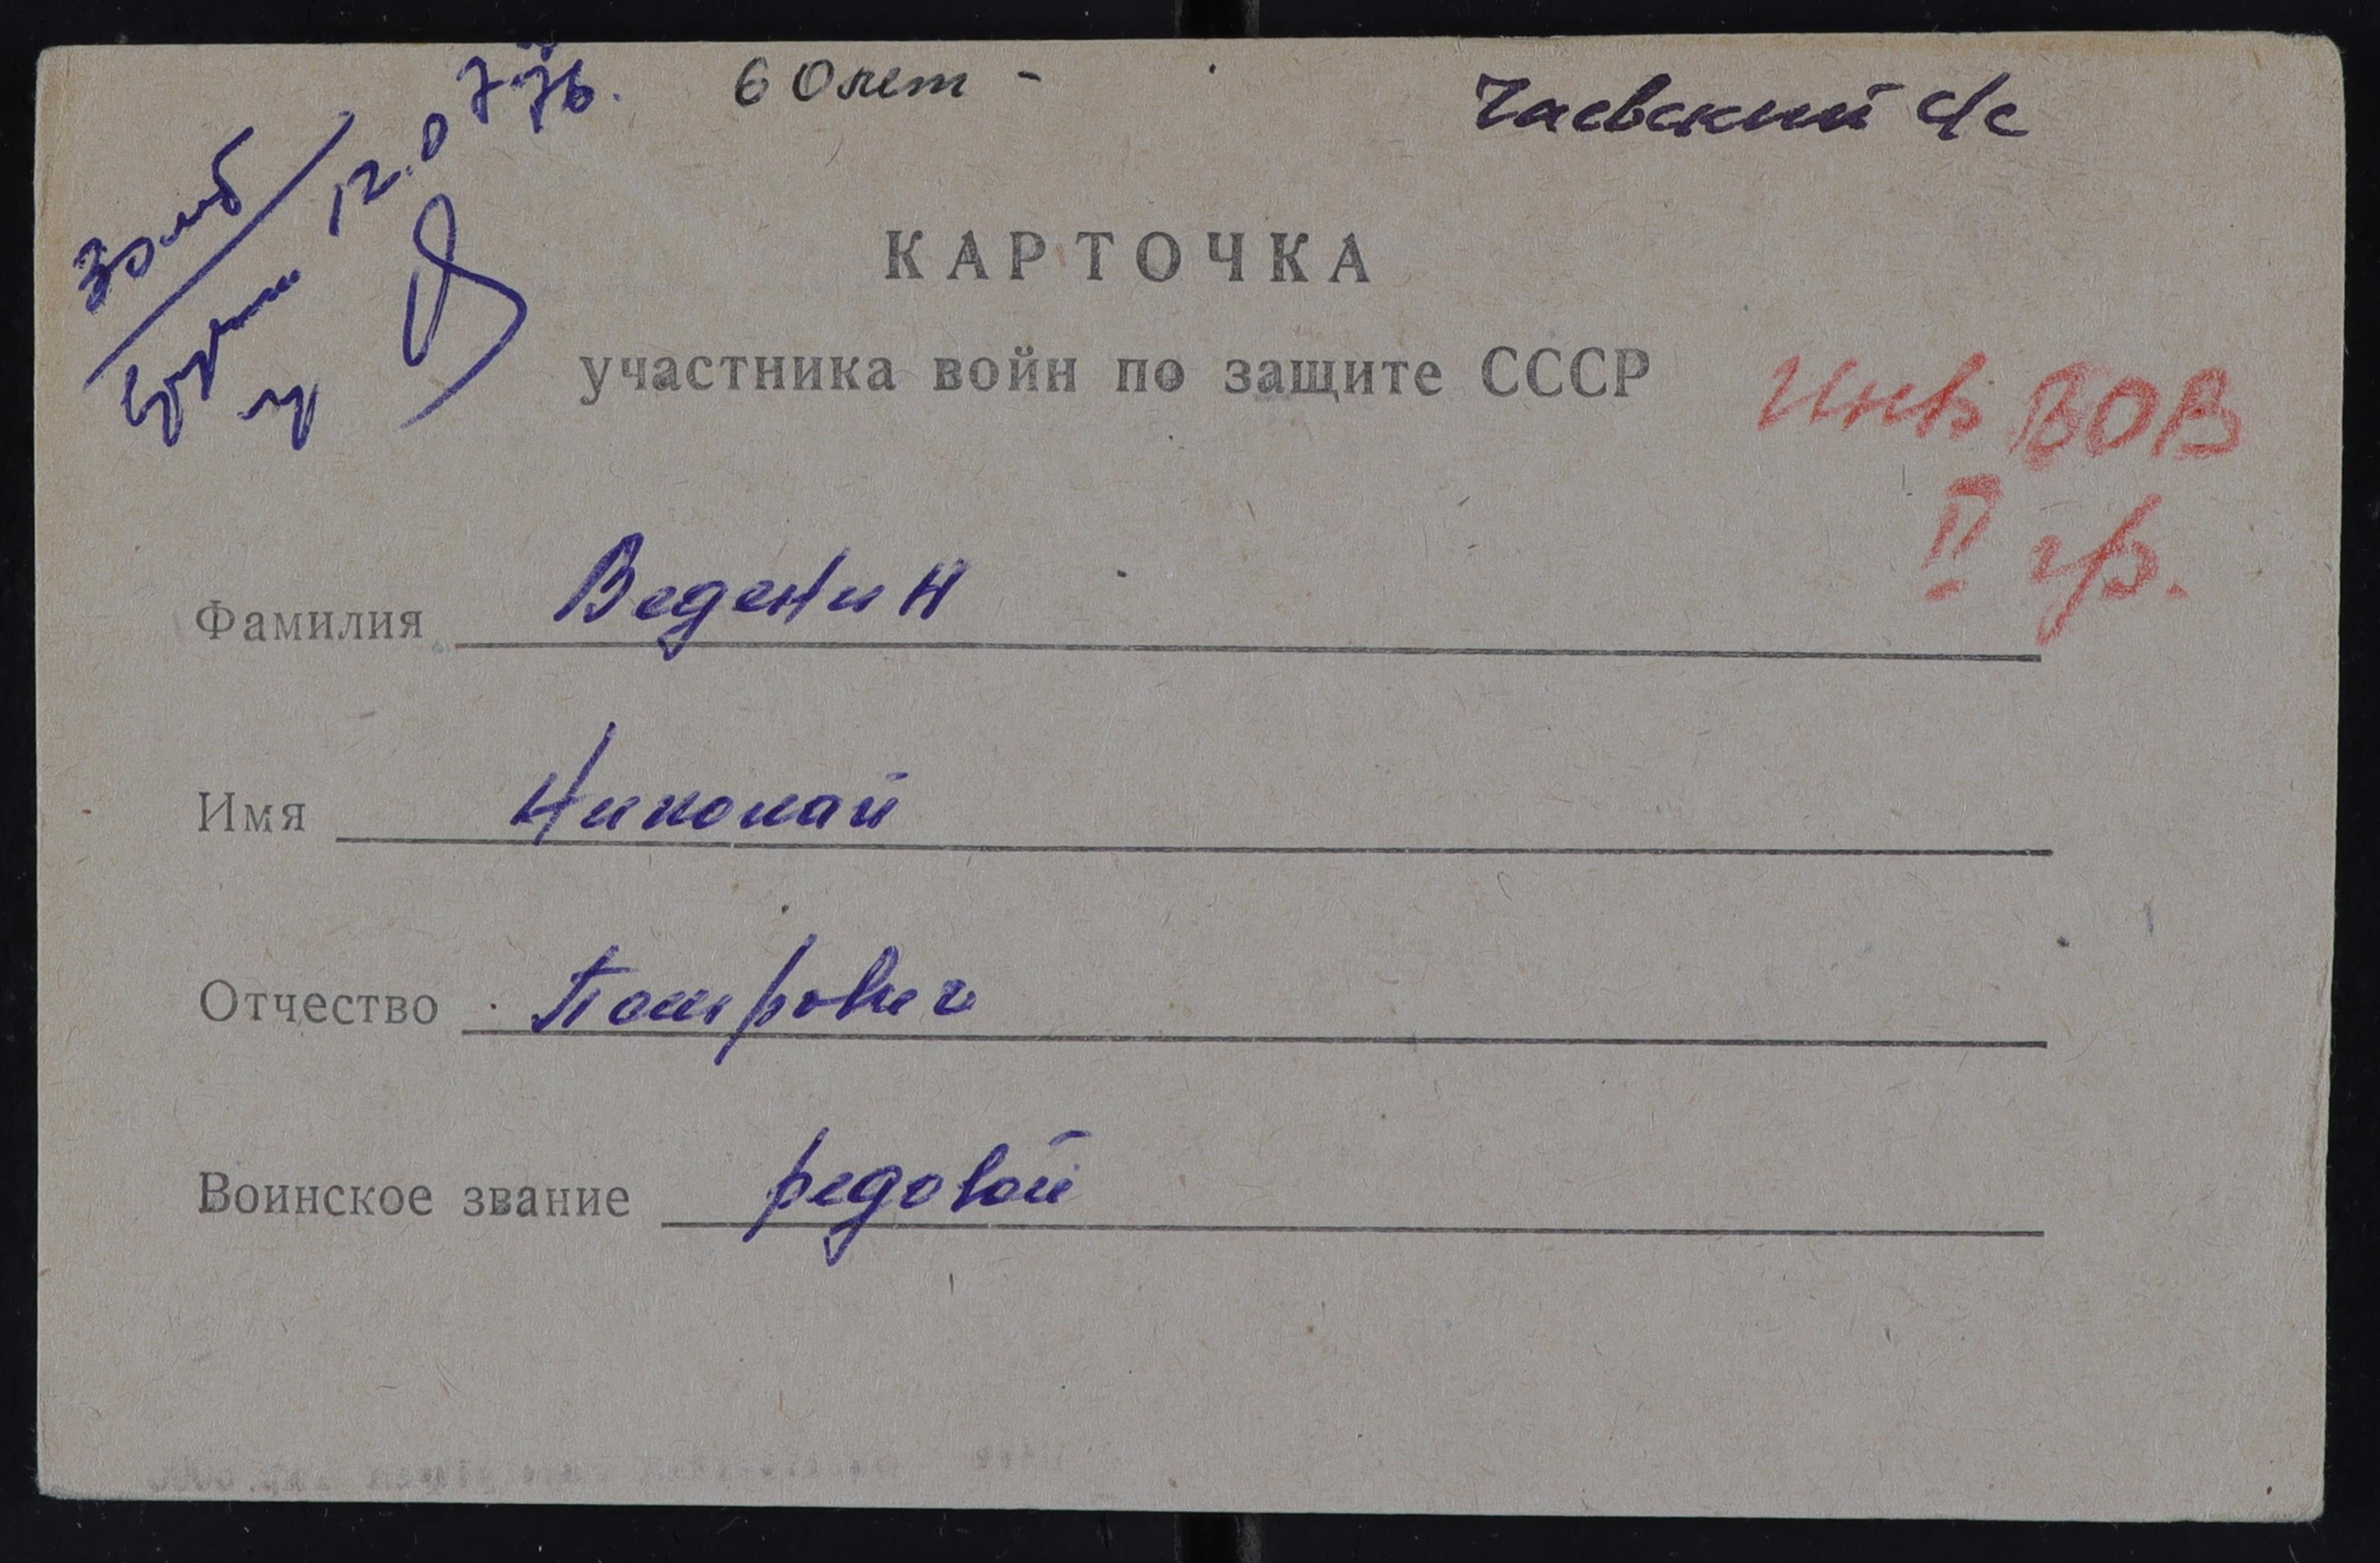 12.07.76.
60 лет -
Чаевский с/с
КАРТОЧКА
участника войн по защите СССР
Инв ВОВ
II гр.
Фамилия Веденин
Имя Николай
Отчество
Воинское звание редовой